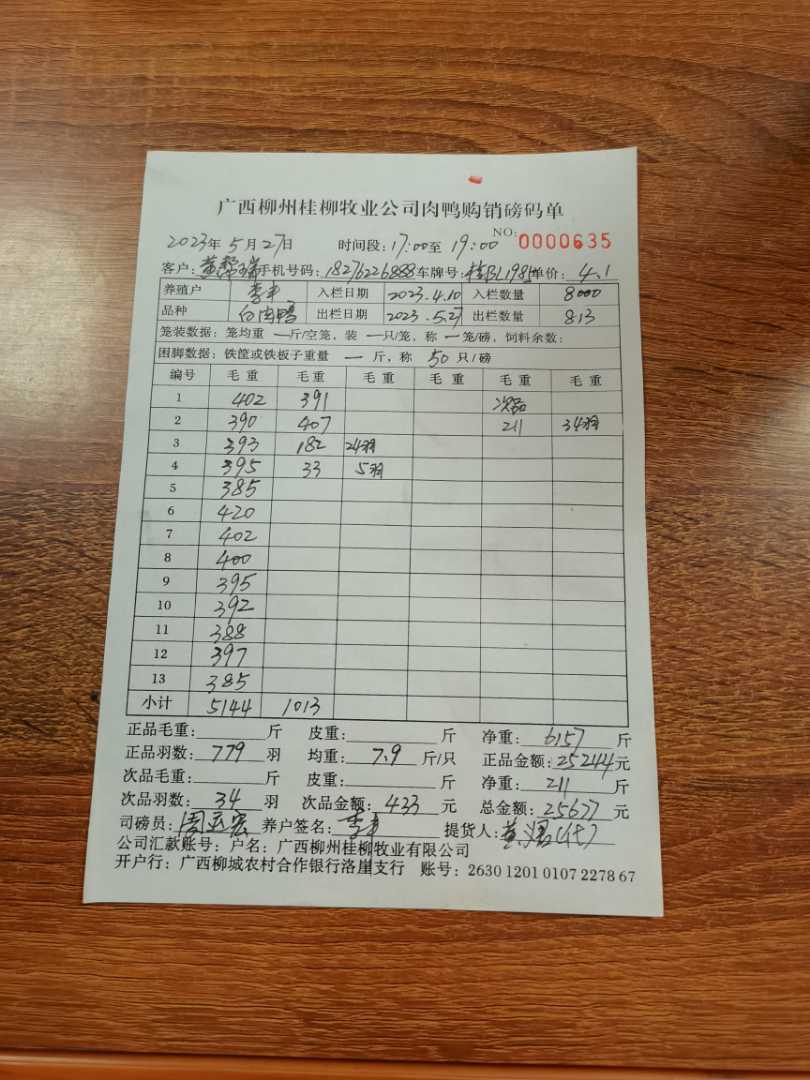 广西柳州桂柳牧业公司肉鸭购销磅码单
NO: 0000635
2023年5月27日 时间段: 17:00至19:00
客户: 黄 手机号码: 18276226888 车牌号: 单价: 4.1
养殖户 李 入栏日期 2023.4.10 入栏数量 8000
品种 白肉鸭 出栏日期 2023.5.27 出栏数量 813
笼装数据: 笼均重 一 斤/空笼, 装 一 只/笼, 称 一 笼/磅, 饲料余数:
困脚数据: 铁筐或铁板子重量 一 斤, 称 50 只/磅
编号 毛重 毛重 毛重 毛重 毛重 毛重
1 402 391 次品
2 390 407 211 34羽
3 393 182 24羽
4 395 33 5羽
5 385
6 420
7 402
8 400
9 395
10 392
11 388
12 397
13 385
小计 5144 1013
正品毛重: 斤 皮重: 斤 净重: 6157 斤
正品羽数: 779 羽 均重: 7.9 斤/只 正品金额: 25244元
次品毛重: 斤 皮重: 斤 净重: 211 斤
次品羽数: 34 羽 次品金额: 433 元 总金额: 25677元
司磅员: 周 宏 养户签名: 李 提货人: 黄 (代)
公司汇款账号: 户名: 广西柳州桂柳牧业有限公司
开户行: 广西柳城农村合作银行洛崖支行 账号: 2630 1201 0107 2278 67